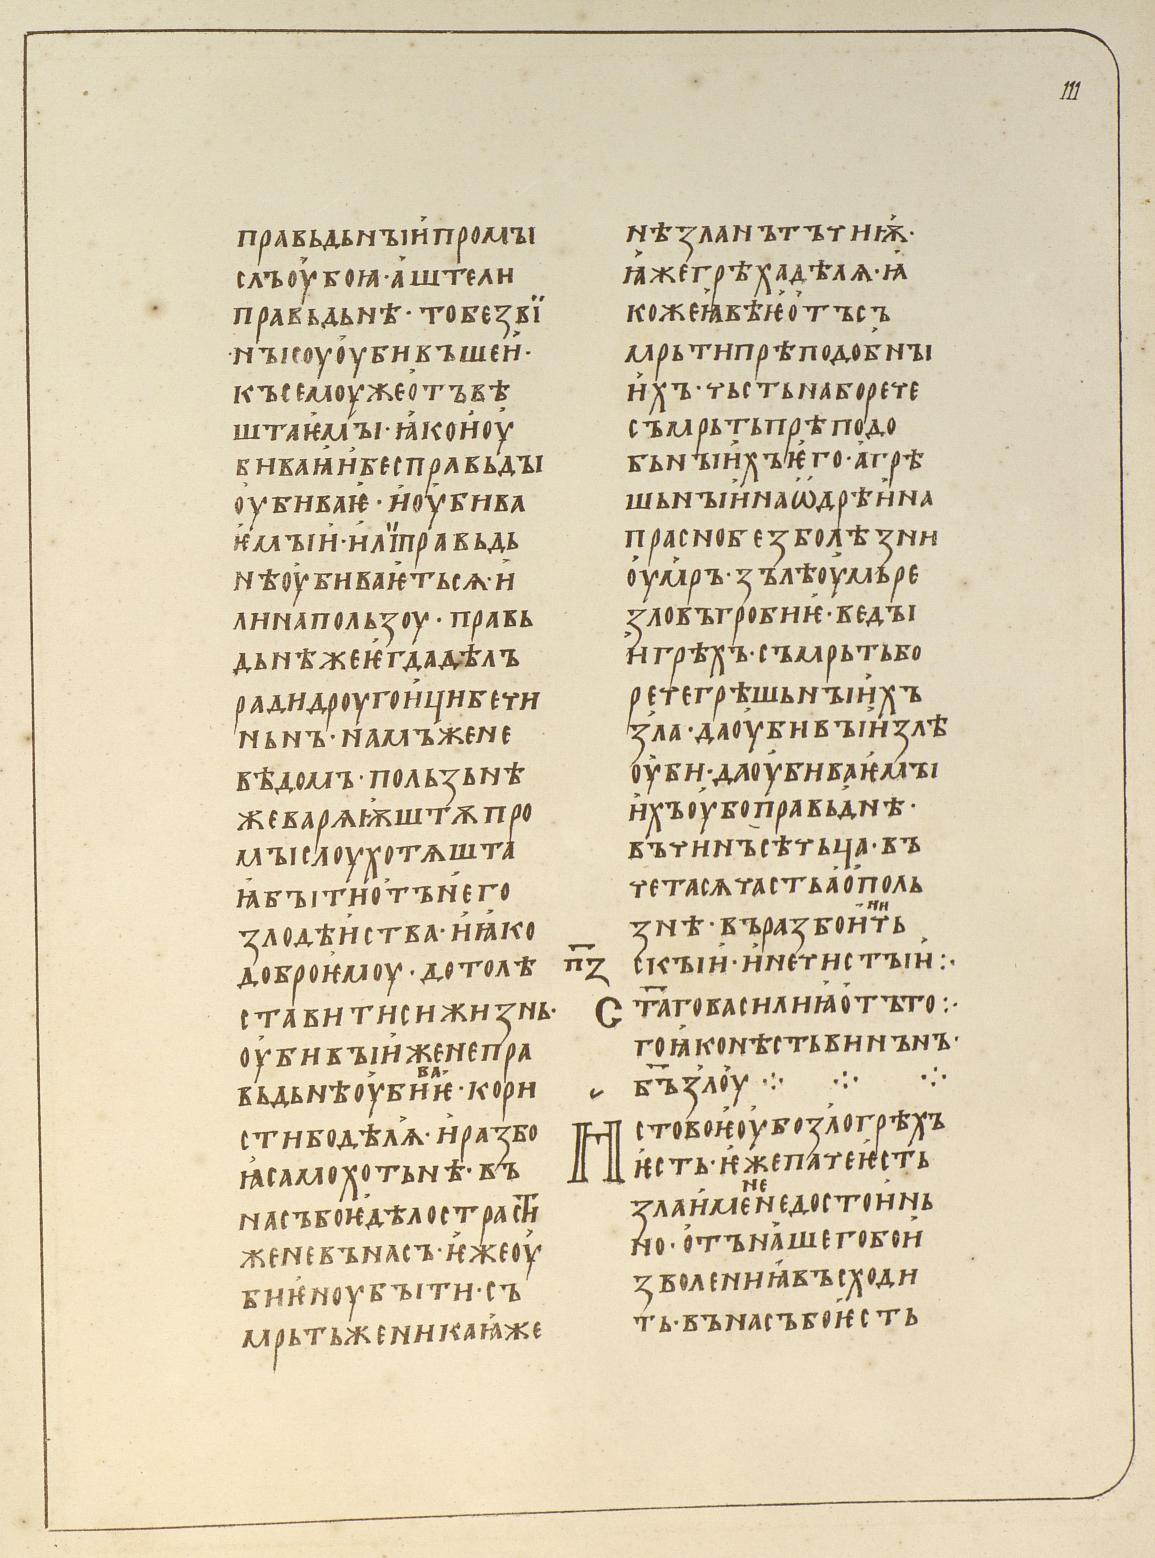 111
правьдьнꙑи҆промꙑ
слъоу҆бою·а҆штели
правьдьнѣ·тобезвї
·нꙑсоуоу҆бивъшеи҆·
къземоужео҆тъвѣ
штаѥ҆мꙑ·ꙗ҆кои҆оу҆
биваꙗ҆и҆беспра вьдꙑ
оу҆биваѥ҆·и҆оу҆бива
ѥ҆мꙑи҆·и҆лїправьдь
нѣоу҆биваѥ҆тьсѧ·и҆
линапользоу·правь
дьнѣжеѥ҆гдадѣлъ
радидроугои҆цибечи
ньнъ·намъжене
вѣдомъ·пользьнѣ
жеварѧѭ҆штѫпро
мꙑслоухотѧшта
ꙗ҆бꙑтио҆тън҆его
злодѣи҆ства·и҆ꙗ҆ко
доброѥ҆моу·дотолѣ
ставитисижизнь·
оу҆бивꙑи҆женепра
вьдьнѣоу҆биваѥ҆·коры
стибодѣлꙗ҆·и҆разбо
ꙗ҆самохотьнѣ·въ
насъбоѥ҆дѣлострасти҆
женевънасъ·ѥ҆жеоу҆
биѥ҆ноубꙑти·съ
мрьтьженикаꙗ҆же
нѣзланътъчиѭ҆·
ꙗ҆жегрѣхадѣлѧ·ꙗ҆
кожеꙗ҆вѣѥ҆о҆тъсъ
мрьтипрѣподобнꙑ
и҆хъ·чьстьнаборече
съмрьтьпрѣподо
бьнꙑи҆хъѥ҆го·а҆грѣ
шьнꙑи҆наѡ҆дрѣи҆на
праснобезболѣзни
оу҆мр҆ъ·зълѣоу҆мьре
зловъгробиѥ҆·ведꙑ
и҆грѣхъ·съмрьтьбо
речегрѣшьнꙑи҆хъ
зла·даоу҆бивꙑи҆злѣ
оу҆би·даоу҆биваѥ҆мꙑ
и҆хъоу҆боправьднѣ·
въчинъсѣчьца·въ
четасѧчастьа҆о҆поль
знѣ·въразбои҆ничь
пз скꙑи҆·и҆нечистꙑи҆:·
С та҃говасилиꙗ҆о҆тъго:·
гоꙗ҆конѣстьвинънъ·
б҃ъзлоу҆ ·:· ·:· ·:·
И стовоѥ҆оу҆бозлогрѣхъ
ѥ҆сть·ѥ҆жепачеѥ҆сть
злаи҆менедостои҆нь
но·о҆тънашегобои҆
зволениꙗ҆въсходи
ть·вънасъбоѥ҆сть